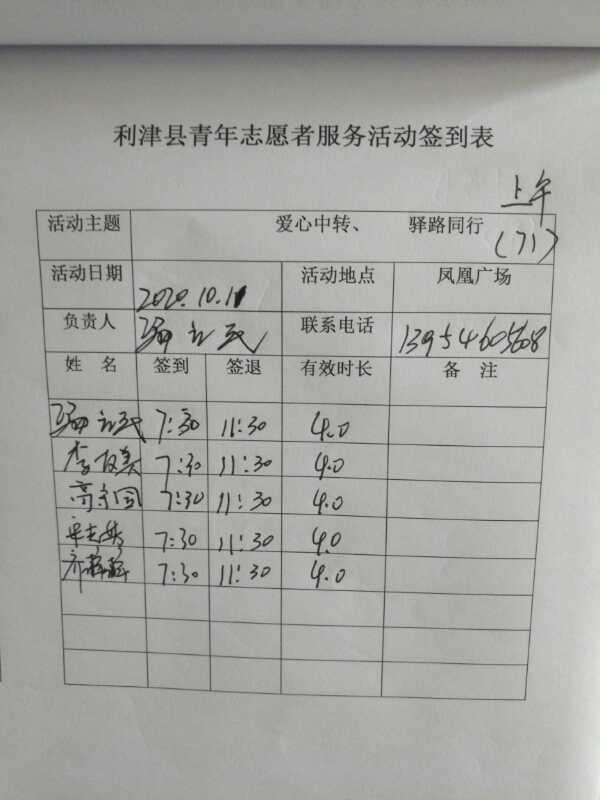 利津县青年志愿者服务活动签到表
上午
活动主题 爱心中转、 驿路同行
(71)
活动日期 2020.10.11 活动地点 凤凰广场
负责人 联系电话 13954605608
姓 名 签到 签退 有效时长 备 注
7:30 11:30 4.0
李 7:30 11:30 4.0
高守国 7:30 11:30 4.0
7:30 11:30 4.0
7:30 11:30 4.0